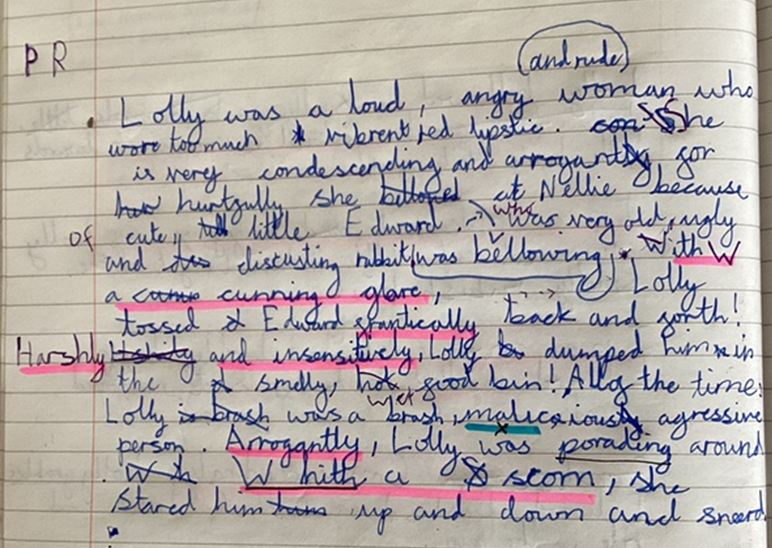 PR
(and rude)
Lolly was a loud, angry woman who
wore too much vibrent red lipstic. She
is very condescending and arrogant for
how hurtfully she bellowed at Nellie because
of cute, little Edward. who was very old, ugly
and discusting rabbit was bellowing. With W
a cunning glare, Lolly
tossed Edward frantically back and forth!
Harshly and insensitively, Lolly dumped him in
the smelly, hot, wet food bin! All of the time,
Lolly is brash was a brash, maliciously agressive
person. Arrogantly, Lolly was porading around
. With Whith a scorn, she
stared him up and down and sneerd